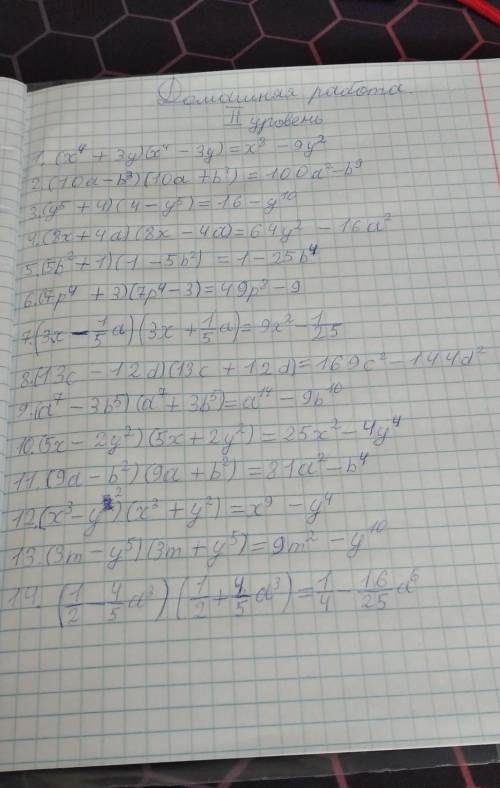 Домашняя работа
II уровень
1. (x⁴ + 3y)(x⁴ - 3y) = x⁸ - 9y²
2. (10a - b³)(10a + b³) = 100a² - b⁹
3. (y⁵ + 4)(4 - y⁵) = 16 - y¹⁰
4. (8x + 4a)(8x - 4a) = 64y² - 16a²
5. (5b² + 1)(1 - 5b²) = 1 - 25b⁴
6. (7p⁴ + 3)(7p⁴ - 3) = 49p⁸ - 9
7. (3x - 1/5 a)(3x + 1/5 a) = 9x² - 1/25
8. (13c - 12d)(13c + 12d) = 169c² - 144d²
9. (a⁷ - 3b⁵)(a⁷ + 3b⁵) = a¹⁴ - 9b¹⁰
10. (5x - 2y²)(5x + 2y²) = 25x² - 4y⁴
11. (9a - b²)(9a + b²) = 81a² - b⁴
12. (x³ - y²)(x³ + y²) = x⁹ - y⁴
13. (3m - y⁵)(3m + y⁵) = 9m² - y¹⁰
14. (1/2 - 4/5 a³)(1/2 + 4/5 a³) = 1/4 - 16/25 a⁶